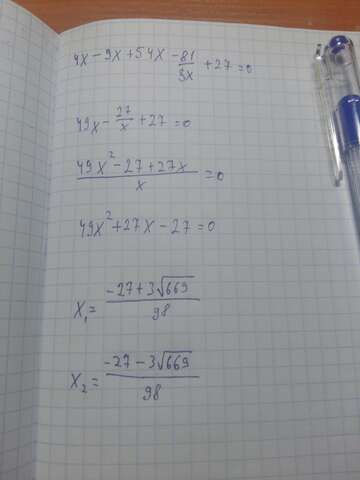 4x - 9x + 54x - 81/3x + 27 = 0
49x - 27/x + 27 = 0
(49x² - 27 + 27x)/x = 0
49x² + 27x - 27 = 0
x₁ = (-27 + 3√669)/98
x₂ = (-27 - 3√669)/98